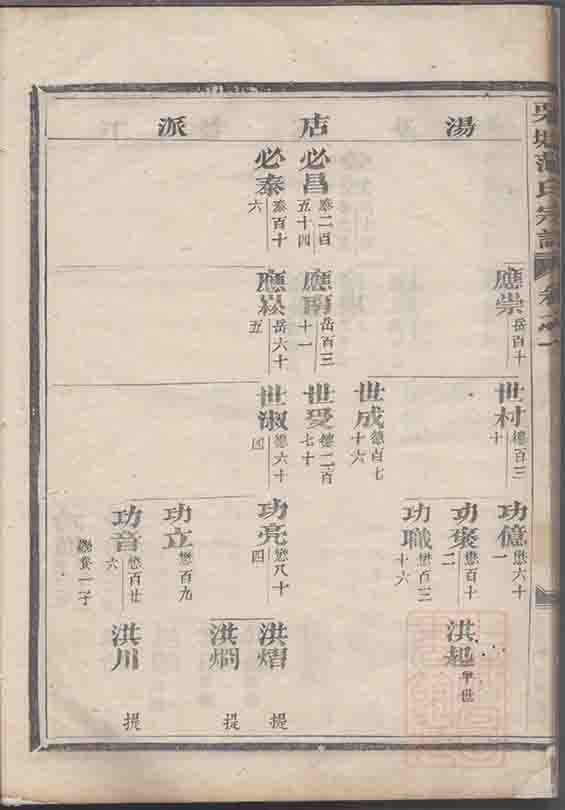 湯店派
必昌 泰二百五十四
必泰 泰百十六
應崇 岳百十
應南 岳百三十一
應崧 岳六十五
世村 德百三十
世成 德百七十六
世受 德二百七十
世淑 德六十四
功億 懋六十一
功褒 懋百十二
功職 懋百三十六
功亮 懋八十四
功立 懋百九
功音 懋百廿六
洪起 早世
洪熠 提
洪燜 提
洪川 提
氏宗譜
卷之一